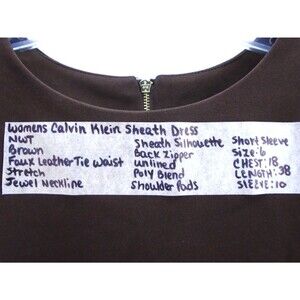 Womens Calvin Klein Sheath Dress
NWT
Brown
Faux Leather Tie Waist
Stretch
Jewel Neckline
Sheath Silhouette
Back Zipper
unlined
Poly Blend
Shoulder Pads
Short Sleeve
Size: 6
CHEST: 18
LENGTH: 38
SLEEVE: 10